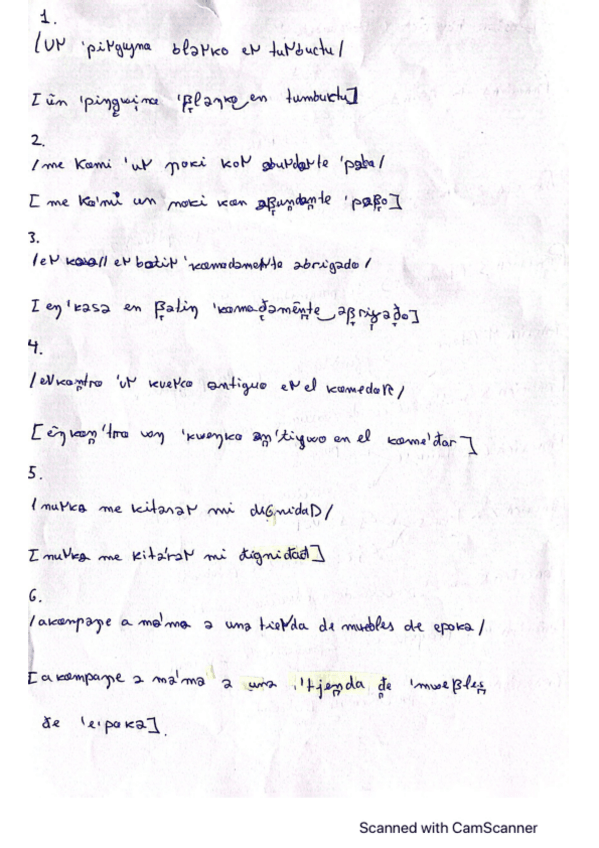 1.
/uɴ ˈpiɴguɪna blaɴko eɴ tuɴbuctu/
[ũn ˈpiŋgwina ˈβ̞laŋko‿en tumbuktu]
2.
/me komi ˈuɴ poki koɴ abundante ˈpabo/
[me koˈmi un poki kon aβ̞undante ˈpaβ̞o]
3.
/eɴ kasa// eɴ batiɴ ˈkomodameɴte abrigado/
[eŋ ˈkasa en β̞atin ˈkomað̞amẽnte‿aβ̞riɣað̞o]
4.
/eɴkontro ˈuɴ kueɴco antiguo eɴ el komedoR/
[ẽŋkonˈtro uŋ ˈkweŋko anˈtiɣwo en el komeˈðar]
5.
/nuɴka me kitaraɴ mi diGnidaD/
[nuɴka me kitáraɴ mi dignidad]
6.
/akompaɲe a maˈma a una tieɴda de muebles de epoka/
[akompaɲe a maˈma a una ˈtjenda ð̞e ˈmweβ̞les
ð̞e ˈepoka].
Scanned with CamScanner